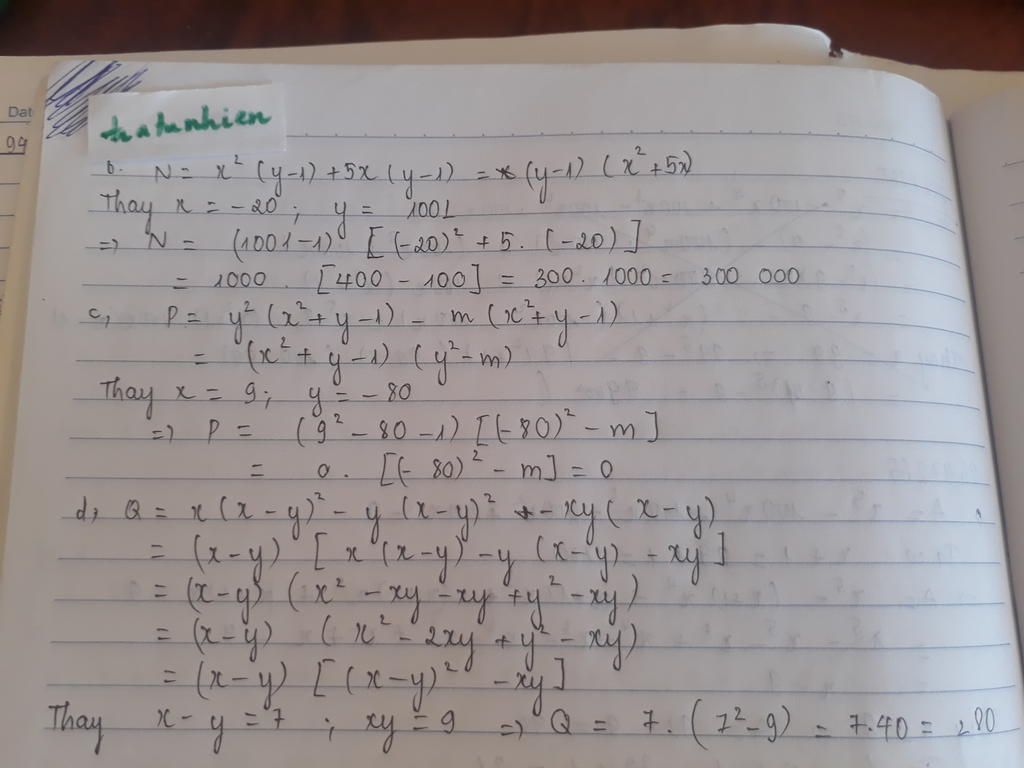 Dat
94
hatunhien
b. N = x² (y-1) + 5x (y-1) = (y-1) (x² + 5x)
Thay x = -20 ; y = 1001
=> N = (1001-1) [(-20)² + 5. (-20)]
= 1000 . [400 - 100] = 300. 1000 = 300 000
c, P = y² (x² + y - 1) - m (x² + y - 1)
= (x² + y - 1) (y² - m)
Thay x = 9; y = -80
=> P = (9² - 80 - 1) [(-80)² - m]
= 0. [(-80)² - m] = 0
d, Q = x (x - y)² - y (x-y)² - xy ( x - y)
= (x-y) [ x (x-y) - y (x-y) - xy]
= (x-y) (x² - xy - xy + y² - xy)
= (x-y) ( x² - 2xy + y² - xy)
= (x-y) [(x-y)² - xy]
Thay x - y = 7 ; xy = 9 => Q = 7. (7² - 9) = 7.40 = 280